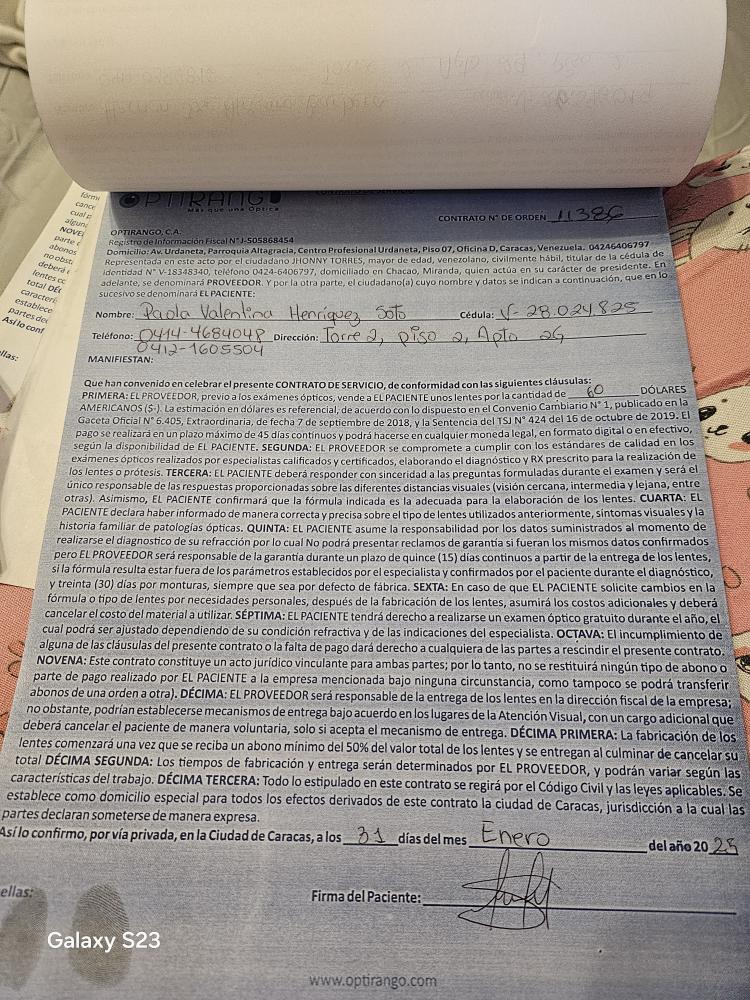 OPTIRANGO
Más que una Óptica
CONTRATO N° DE ORDEN 11386
OPTIRANGO, C.A.
Registro de Información Fiscal N°J-505868454
Domicilio: Av. Urdaneta, Parroquia Altagracia, Centro Profesional Urdaneta, Piso 07, Oficina D, Caracas, Venezuela. 04246406797
Representada en este acto por el ciudadano JHONNY TORRES, mayor de edad, venezolano, civilmente hábil, titular de la cédula de
identidad N° V-18348340, teléfono 0424-6406797, domiciliado en Chacao, Miranda, quien actúa en su carácter de presidente. En
adelante, se denominará PROVEEDOR. Y por la otra parte, el ciudadano(a) cuyo nombre y datos se indican a continuación, que en lo
sucesivo se denominará EL PACIENTE:
Nombre: Paola Valentina Henriquez Soto Cédula: V- 28.024.825
Teléfono: 0414-4684048 Dirección: Torre 2, piso 2, Apto 2G
0412-1605504
MANIFIESTAN:
Que han convenido en celebrar el presente CONTRATO DE SERVICIO, de conformidad con las siguientes cláusulas:
PRIMERA: EL PROVEEDOR, previo a los exámenes ópticos, vende a EL PACIENTE unos lentes por la cantidad de 60 DÓLARES
AMERICANOS ($-). La estimación en dólares es referencial, de acuerdo con lo dispuesto en el Convenio Cambiario N° 1, publicado en la
Gaceta Oficial N° 6.405, Extraordinaria, de fecha 7 de septiembre de 2018, y la Sentencia del TSJ N° 424 del 16 de octubre de 2019. El
pago se realizará en un plazo máximo de 45 días continuos y podrá hacerse en cualquier moneda legal, en formato digital o en efectivo,
según la disponibilidad de EL PACIENTE. SEGUNDA: EL PROVEEDOR se compromete a cumplir con los estándares de calidad en los
exámenes ópticos realizados por especialistas calificados y certificados, elaborando el diagnóstico y RX prescrito para la realización de
los lentes o prótesis. TERCERA: EL PACIENTE deberá responder con sinceridad a las preguntas formuladas durante el examen y será el
único responsable de las respuestas proporcionadas sobre las diferentes distancias visuales (visión cercana, intermedia y lejana, entre
otras). Asimismo, EL PACIENTE confirmará que la fórmula indicada es la adecuada para la elaboración de los lentes. CUARTA: EL
PACIENTE declara haber informado de manera correcta y precisa sobre el tipo de lentes utilizados anteriormente, síntomas visuales y la
historia familiar de patologías ópticas. QUINTA: EL PACIENTE asume la responsabilidad por los datos suministrados al momento de
realizarse el diagnostico de su refracción por lo cual No podrá presentar reclamos de garantía si fueran los mismos datos confirmados
pero EL PROVEEDOR será responsable de la garantía durante un plazo de quince (15) días continuos a partir de la entrega de los lentes,
si la fórmula resulta estar fuera de los parámetros establecidos por el especialista y confirmados por el paciente durante el diagnóstico,
y treinta (30) días por monturas, siempre que sea por defecto de fábrica. SEXTA: En caso de que EL PACIENTE solicite cambios en la
fórmula o tipo de lentes por necesidades personales, después de la fabricación de los lentes, asumirá los costos adicionales y deberá
cancelar el costo del material a utilizar. SÉPTIMA: EL PACIENTE tendrá derecho a realizarse un examen óptico gratuito durante el año, el
cual podrá ser ajustado dependiendo de su condición refractiva y de las indicaciones del especialista. OCTAVA: El incumplimiento de
alguna de las cláusulas del presente contrato o la falta de pago dará derecho a cualquiera de las partes a rescindir el presente contrato.
NOVENA: Este contrato constituye un acto jurídico vinculante para ambas partes; por lo tanto, no se restituirá ningún tipo de abono o
parte de pago realizado por EL PACIENTE a la empresa mencionada bajo ninguna circunstancia, como tampoco se podrá transferir
abonos de una orden a otra). DÉCIMA: EL PROVEEDOR será responsable de la entrega de los lentes en la dirección fiscal de la empresa;
no obstante, podrían establecerse mecanismos de entrega bajo acuerdo en los lugares de la Atención Visual, con un cargo adicional que
deberá cancelar el paciente de manera voluntaria, solo si acepta el mecanismo de entrega. DÉCIMA PRIMERA: La fabricación de los
lentes comenzará una vez que se reciba un abono mínimo del 50% del valor total de los lentes y se entregan al culminar de cancelar su
total DÉCIMA SEGUNDA: Los tiempos de fabricación y entrega serán determinados por EL PROVEEDOR, y podrán variar según las
características del trabajo. DÉCIMA TERCERA: Todo lo estipulado en este contrato se regirá por el Código Civil y las leyes aplicables. Se
establece como domicilio especial para todos los efectos derivados de este contrato la ciudad de Caracas, jurisdicción a la cual las
partes declaran someterse de manera expresa.
Así lo confirmo, por vía privada, en la Ciudad de Caracas, a los 31 días del mes Enero del año 2025
ellas:
Firma del Paciente:
Galaxy S23
www.optirango.com